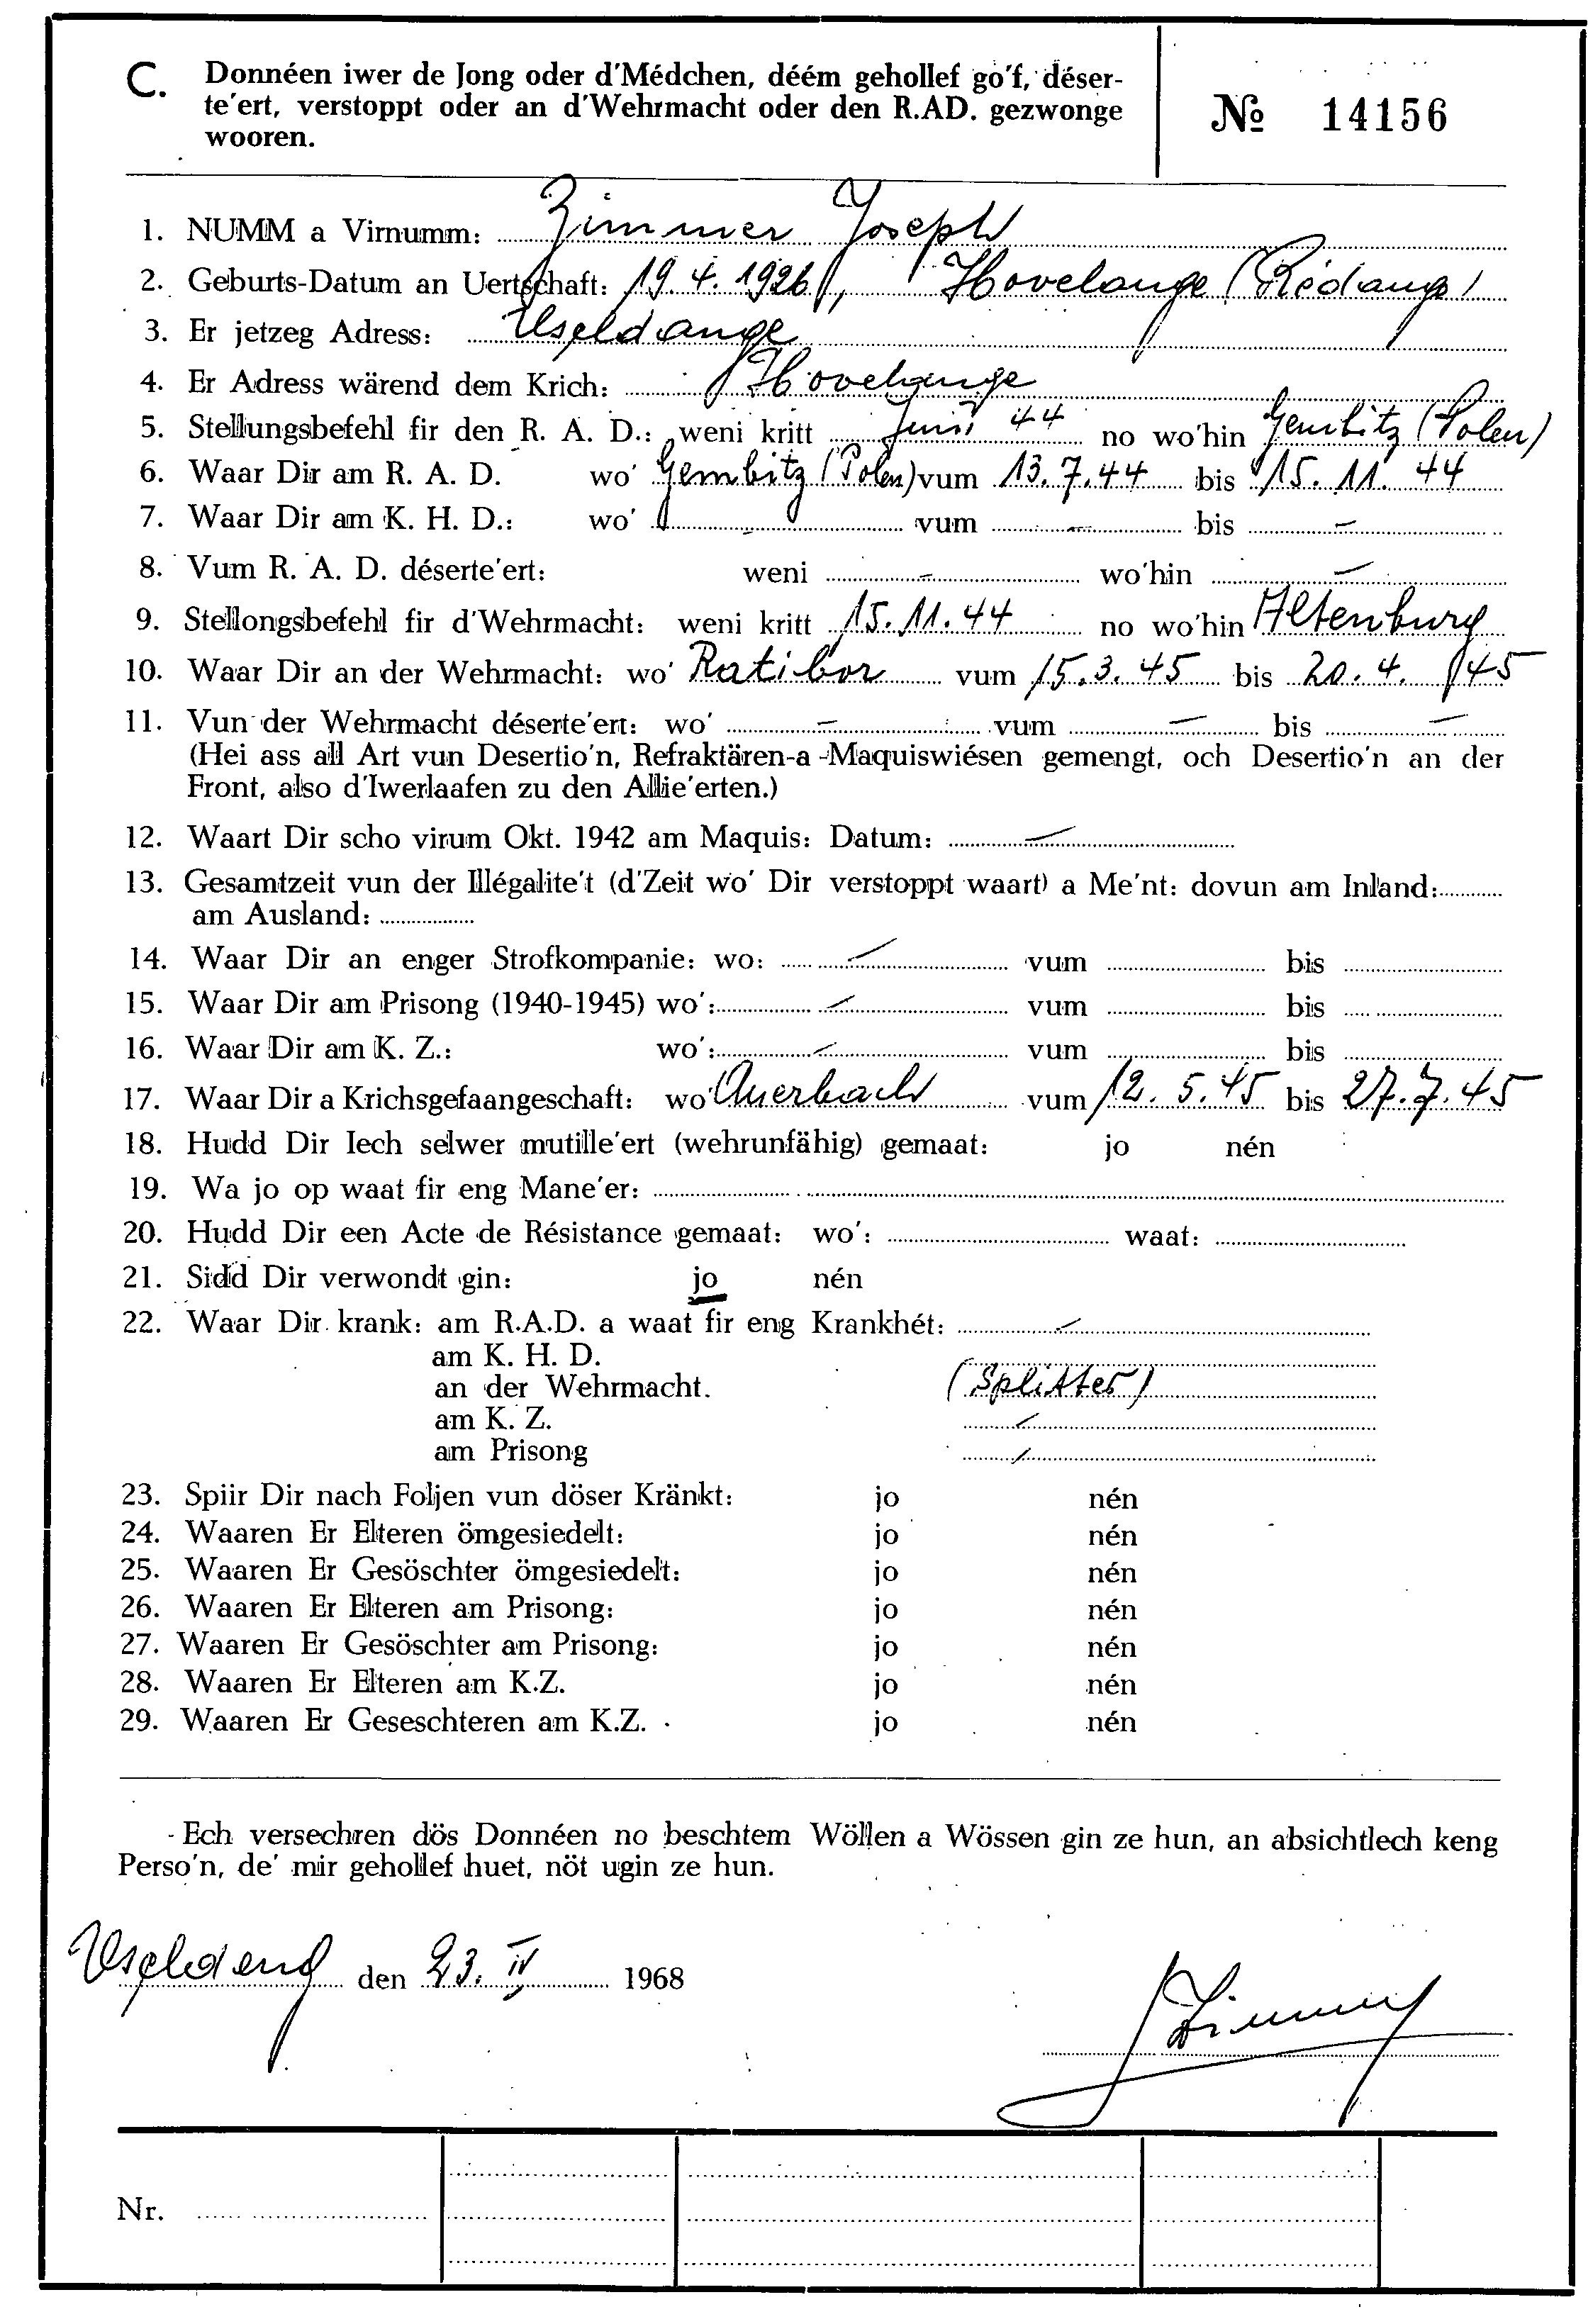 C. Donnéen iwer de Jong oder d'Médchen, déém gehollef go'f, déser-
te'ert, verstoppt oder an d'Wehrmacht oder den R.AD. gezwonge
wooren.
№ 14156
1. NUMM a Virnumm: Zimmer Joseph
2. Geburts-Datum an Uertschaft: 19.4.1926, Hovelange (Rédange)
3. Er jetzeg Adress: Useldange
4. Er Adress wärend dem Krich: Hovelange
5. Stellungsbefehl fir den R. A. D.: weni kritt Juni 44 no wo'hin Gembitz (Polen)
6. Waar Dir am R. A. D. wo' Gembitz (Polen) vum 13.7.44 bis 15.11.44
7. Waar Dir am K. H. D.: wo' - vum - bis -
8. Vum R. A. D. déserte'ert: weni - wo'hin -
9. Stellongsbefehl fir d'Wehrmacht: weni kritt 15.11.44 no wo'hin Altenburg
10. Waar Dir an der Wehrmacht: wo' Ratibor vum 15.3.45 bis 20.4.45
11. Vun der Wehrmacht déserte'ert: wo' - vum - bis -
(Hei ass all Art vun Desertio'n, Refraktären-a-Maquiswiésen gemengt, och Desertio'n an der
Front, also d'Iwerlaafen zu den Allie'erten.)
12. Waart Dir scho virum Okt. 1942 am Maquis: Datum: -
13. Gesamtzeit vun der Illégalite't (d'Zeit wo' Dir verstoppt waart) a Me'nt: dovun am Inland:
am Ausland:
14. Waar Dir an enger Strofkompanie: wo: - vum bis
15. Waar Dir am Prisong (1940-1945) wo': - vum bis
16. Waar Dir am K. Z.: wo': - vum bis
17. Waar Dir a Krichsgefaangeschaft: wo' Auerbach vum 12.5.45 bis 27.7.45
18. Hudd Dir Iech selwer mutille'ert (wehrunfähig) gemaat: jo nén
19. Wa jo op waat fir eng Mane'er:
20. Hudd Dir een Acte de Résistance gemaat: wo': waat:
21. Sidd Dir verwondt gin: jo nén
22. Waar Dir krank: am R.A.D. a waat fir eng Krankhét: -
am K. H. D.
an der Wehrmacht. (Splitter)
am K. Z. -
am Prisong -
23. Spiir Dir nach Foljen vun döser Kränkt: jo nén
24. Waaren Er Elteren ömgesiedelt: jo nén
25. Waaren Er Gesöschter ömgesiedelt: jo nén
26. Waaren Er Elteren am Prisong: jo nén
27. Waaren Er Gesöschter am Prisong: jo nén
28. Waaren Er Elteren am K.Z. jo nén
29. Waaren Er Geseschteren am K.Z. jo nén
Ech versechren dös Donnéen no beschtem Wöllen a Wössen gin ze hun, an absichtlech keng
Perso'n, de' mir gehollef huet, nöt ugin ze hun.
Useldeng den 23. IV 1968
Zimmer
Nr.